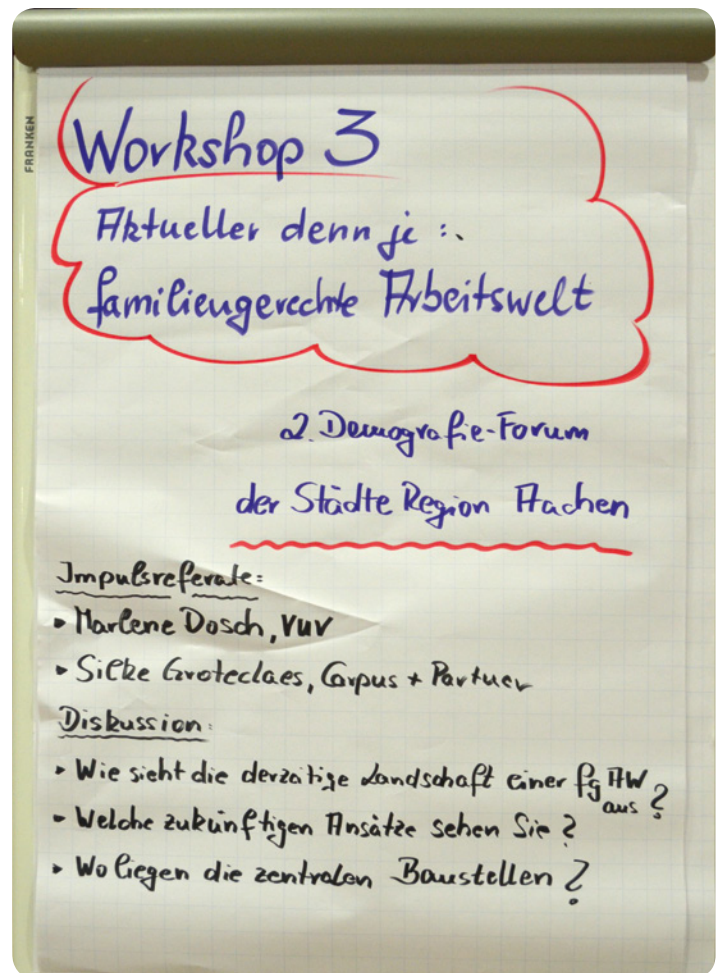 FRANKEN
Workshop 3
Aktueller denn je :.
familiengerechte Arbeitswelt
2. Demografie-Forum
der Städte Region Aachen
Impulsreferate:
• Marlene Dosch, VUV
• Silke Groteclaes, Corpus + Partner
Diskussion:
• Wie sieht die derzeitige Landschaft einer fg AW
aus?
• Welche zukünftigen Ansätze sehen Sie?
• Wo liegen die zentralen Baustellen?